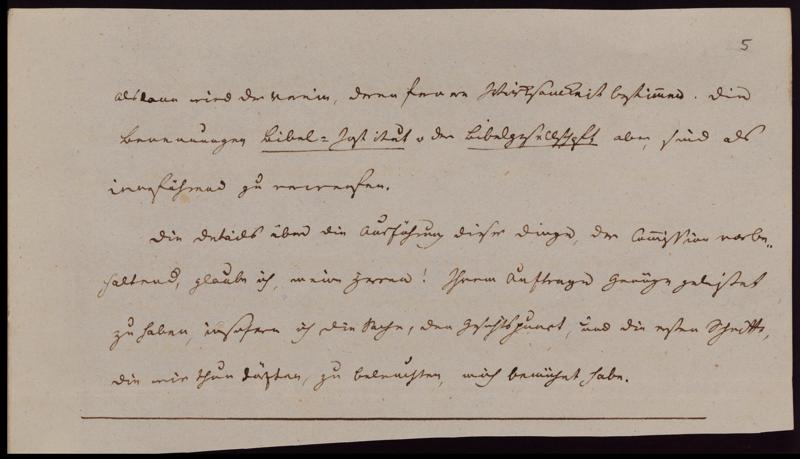 5
alsdann wird der Verein, deren fernere Wirksamkeit bestimmen. Die
Benennungen Bibel=Institut oder Bibelgesellschaft aber, sind als
irreführend zu verwerfen.
Die Details über die Ausführung dieser Dinge, der Commission vorbe=
haltend, glaube ich, meine Herren! Ihrem Auftrage Genüge geleistet
zu haben, insofern ich die Sache, den Gesichtspunct, und die ersten Schritte,
die wir thun dürften, zu beleuchten, mich bemühet habe.